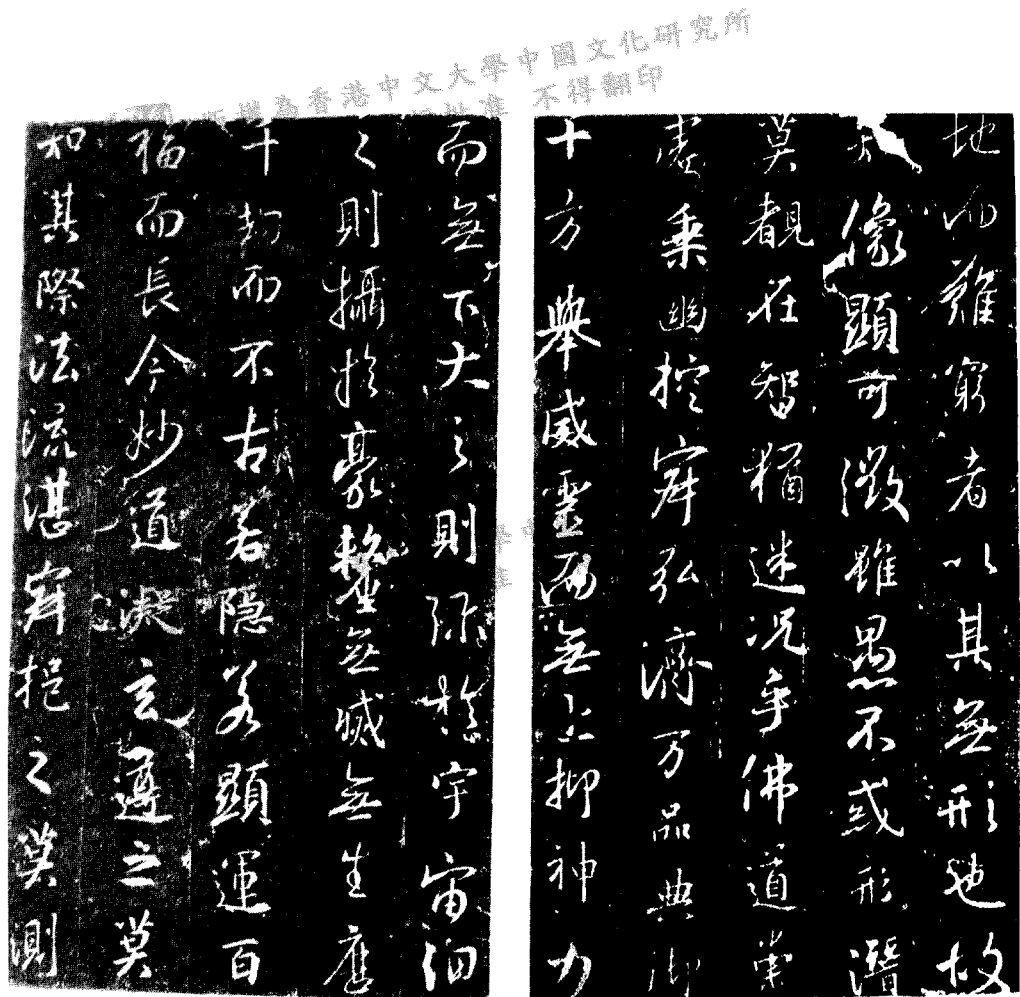 版權為香港中文大學中國文化研究所
批准 不得翻印
地而難窮者以其無形也故
知像顯可徵雖愚不惑形潛
莫覩在智猶迷況乎佛道崇
虛乘幽控寂弘濟万品典御
十方舉威靈而無上抑神力
而無下大之則彌於宇宙細
之則攝於豪釐無滅無生歷
千劫而不古若隱若顯運百
福而長今妙道凝玄遵之莫
知其際法流湛寂挹之莫測